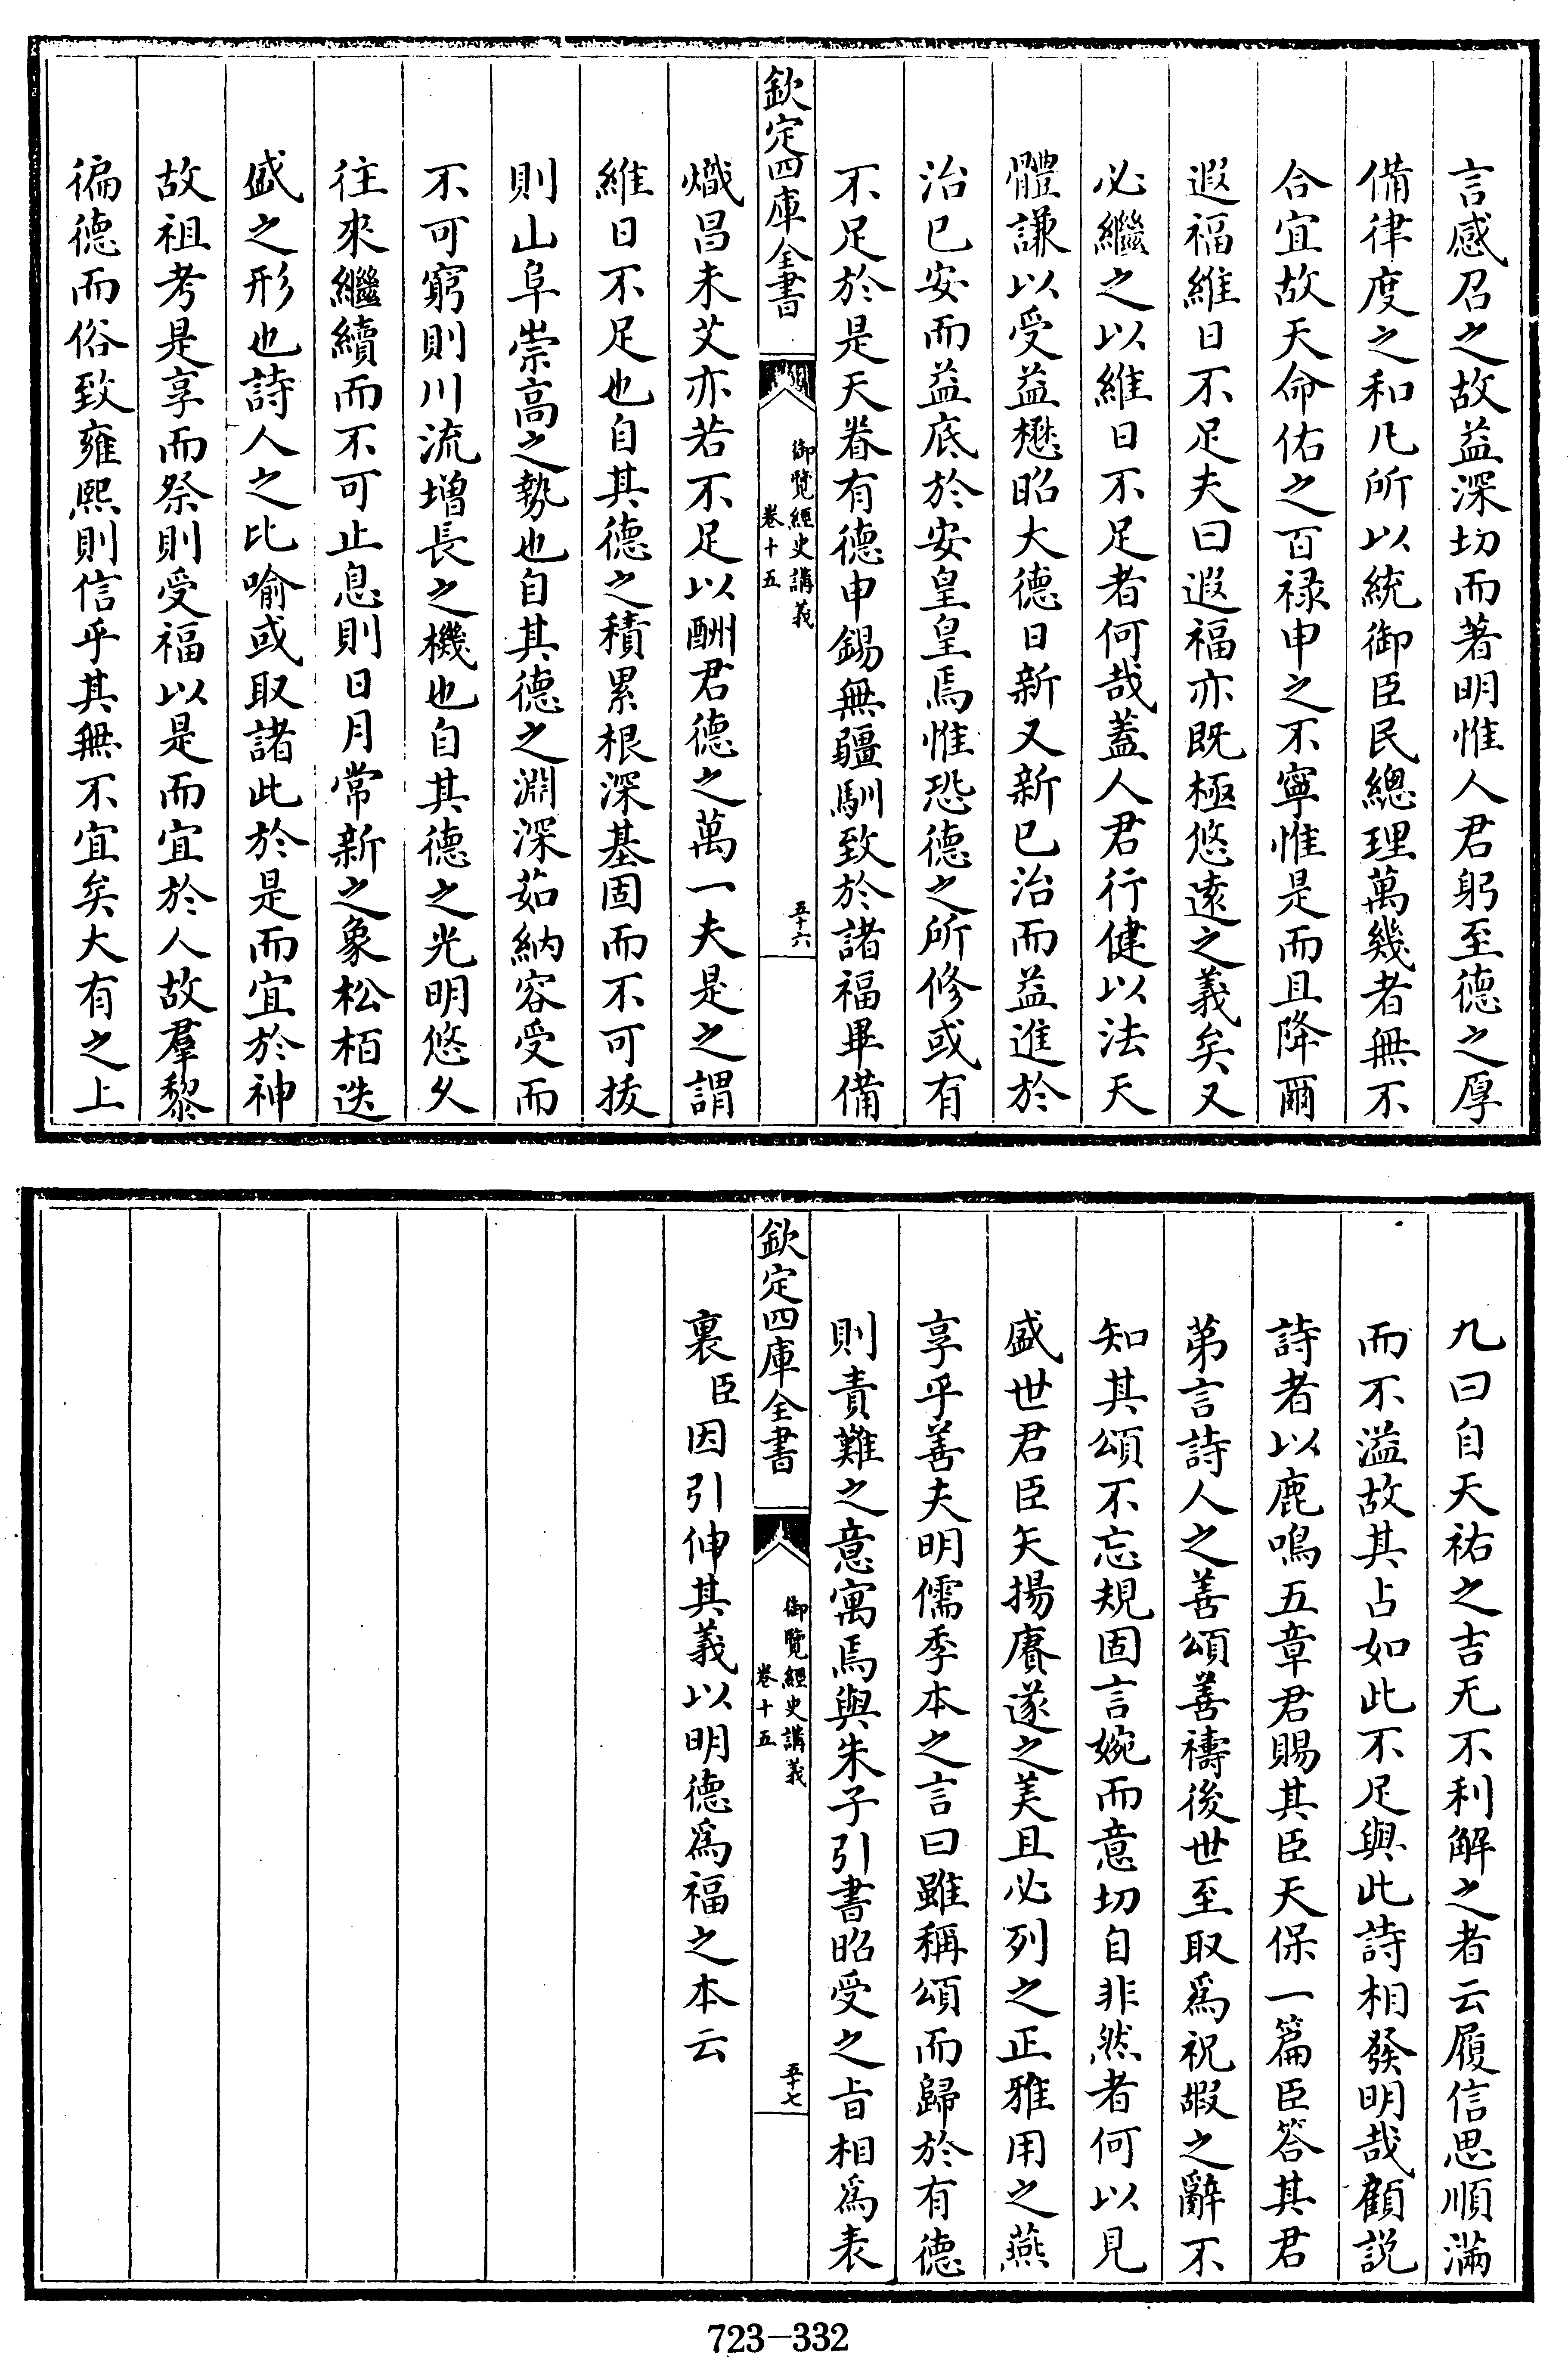 言感召之故益深切而著明惟人君躬至德之厚
備律度之和凡所以統御臣民總理萬幾者無不
合宜故天命佑之百禄申之不寧惟是而且降爾
遐福維日不足夫曰遐福亦既極悠遠之義矣又
必繼之以維日不足者何哉蓋人君行健以法天
體謙以受益懋昭大德日新又新已治而益進於
治已安而益底於安皇皇焉惟恐德之所修或有
不足於是天眷有德申錫無疆馴致於諸福畢備
欽定四庫全書
御覽經史講義
卷十五
五十六
熾昌未艾亦若不足以酬君德之萬一夫是之謂
維日不足也自其德之積累根深基固而不可拔
則山阜崇高之勢也自其德之淵深茹納容受而
不可窮則川流增長之機也自其德之光明悠久
往來繼續而不可止息則日月常新之象松栢迭
盛之形也詩人之比喻或取諸此於是而宜於神
故祖考是享而祭則受福以是而宜於人故羣黎
徧德而俗致雍熙則信乎其無不宜矣大有之上
九曰自天祐之吉无不利解之者云履信思順滿
而不溢故其占如此不足與此詩相發明哉顧說
詩者以鹿鳴五章君賜其臣天保一篇臣答其君
第言詩人之善頌善禱後世至取為祝嘏之辭不
知其頌不忘規固言婉而意切自非然者何以見
盛世君臣矢揚賡遂之美且必列之正雅用之燕
享乎善夫明儒季本之言曰雖稱頌而歸於有德
則責難之意寓焉與朱子引書昭受之旨相為表
欽定四庫全書
御覽經史講義
卷十五
五十七
裏臣因引伸其義以明德為福之本云
723-332